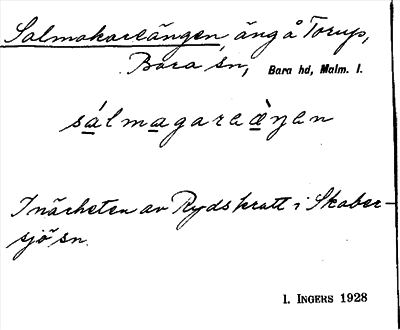 Salmakareängen, äng å Torup,
Bara sn, Bara hd, Malm. l.
sálmagareὰ̀ŋen
I närheten av Ryds kratt i Skaber-
sjö sn.
I. INGERS 1928